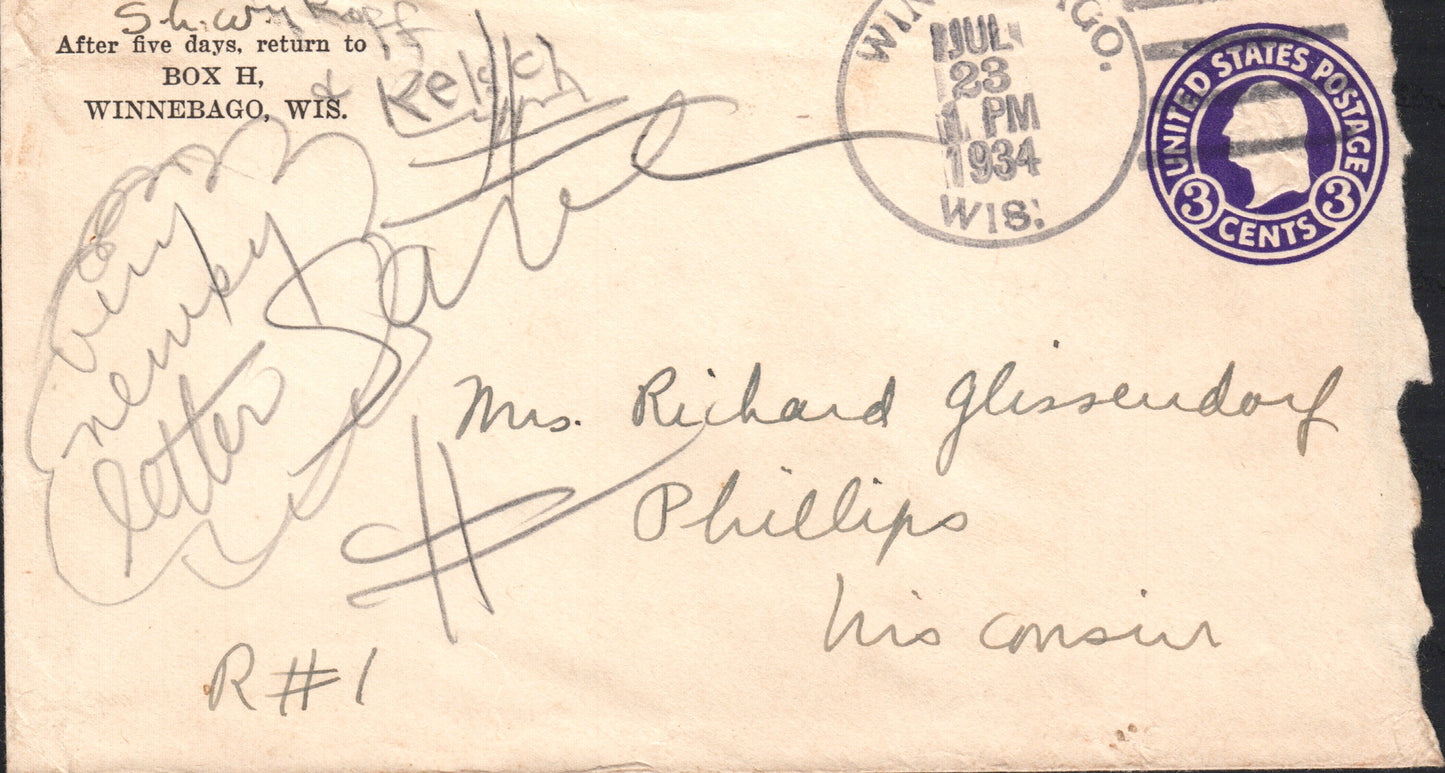 After five days, return to
BOX H,
WINNEBAGO, WIS.
& Kelsch
WINNEBAGO.
JUL
23
1 PM
1934
WIS.
UNITED STATES POSTAGE
3 CENTS 3
very
newsy
letter
# Save #
Mrs. Richard Glissendorf
Phillips
Wisconsin
R#1